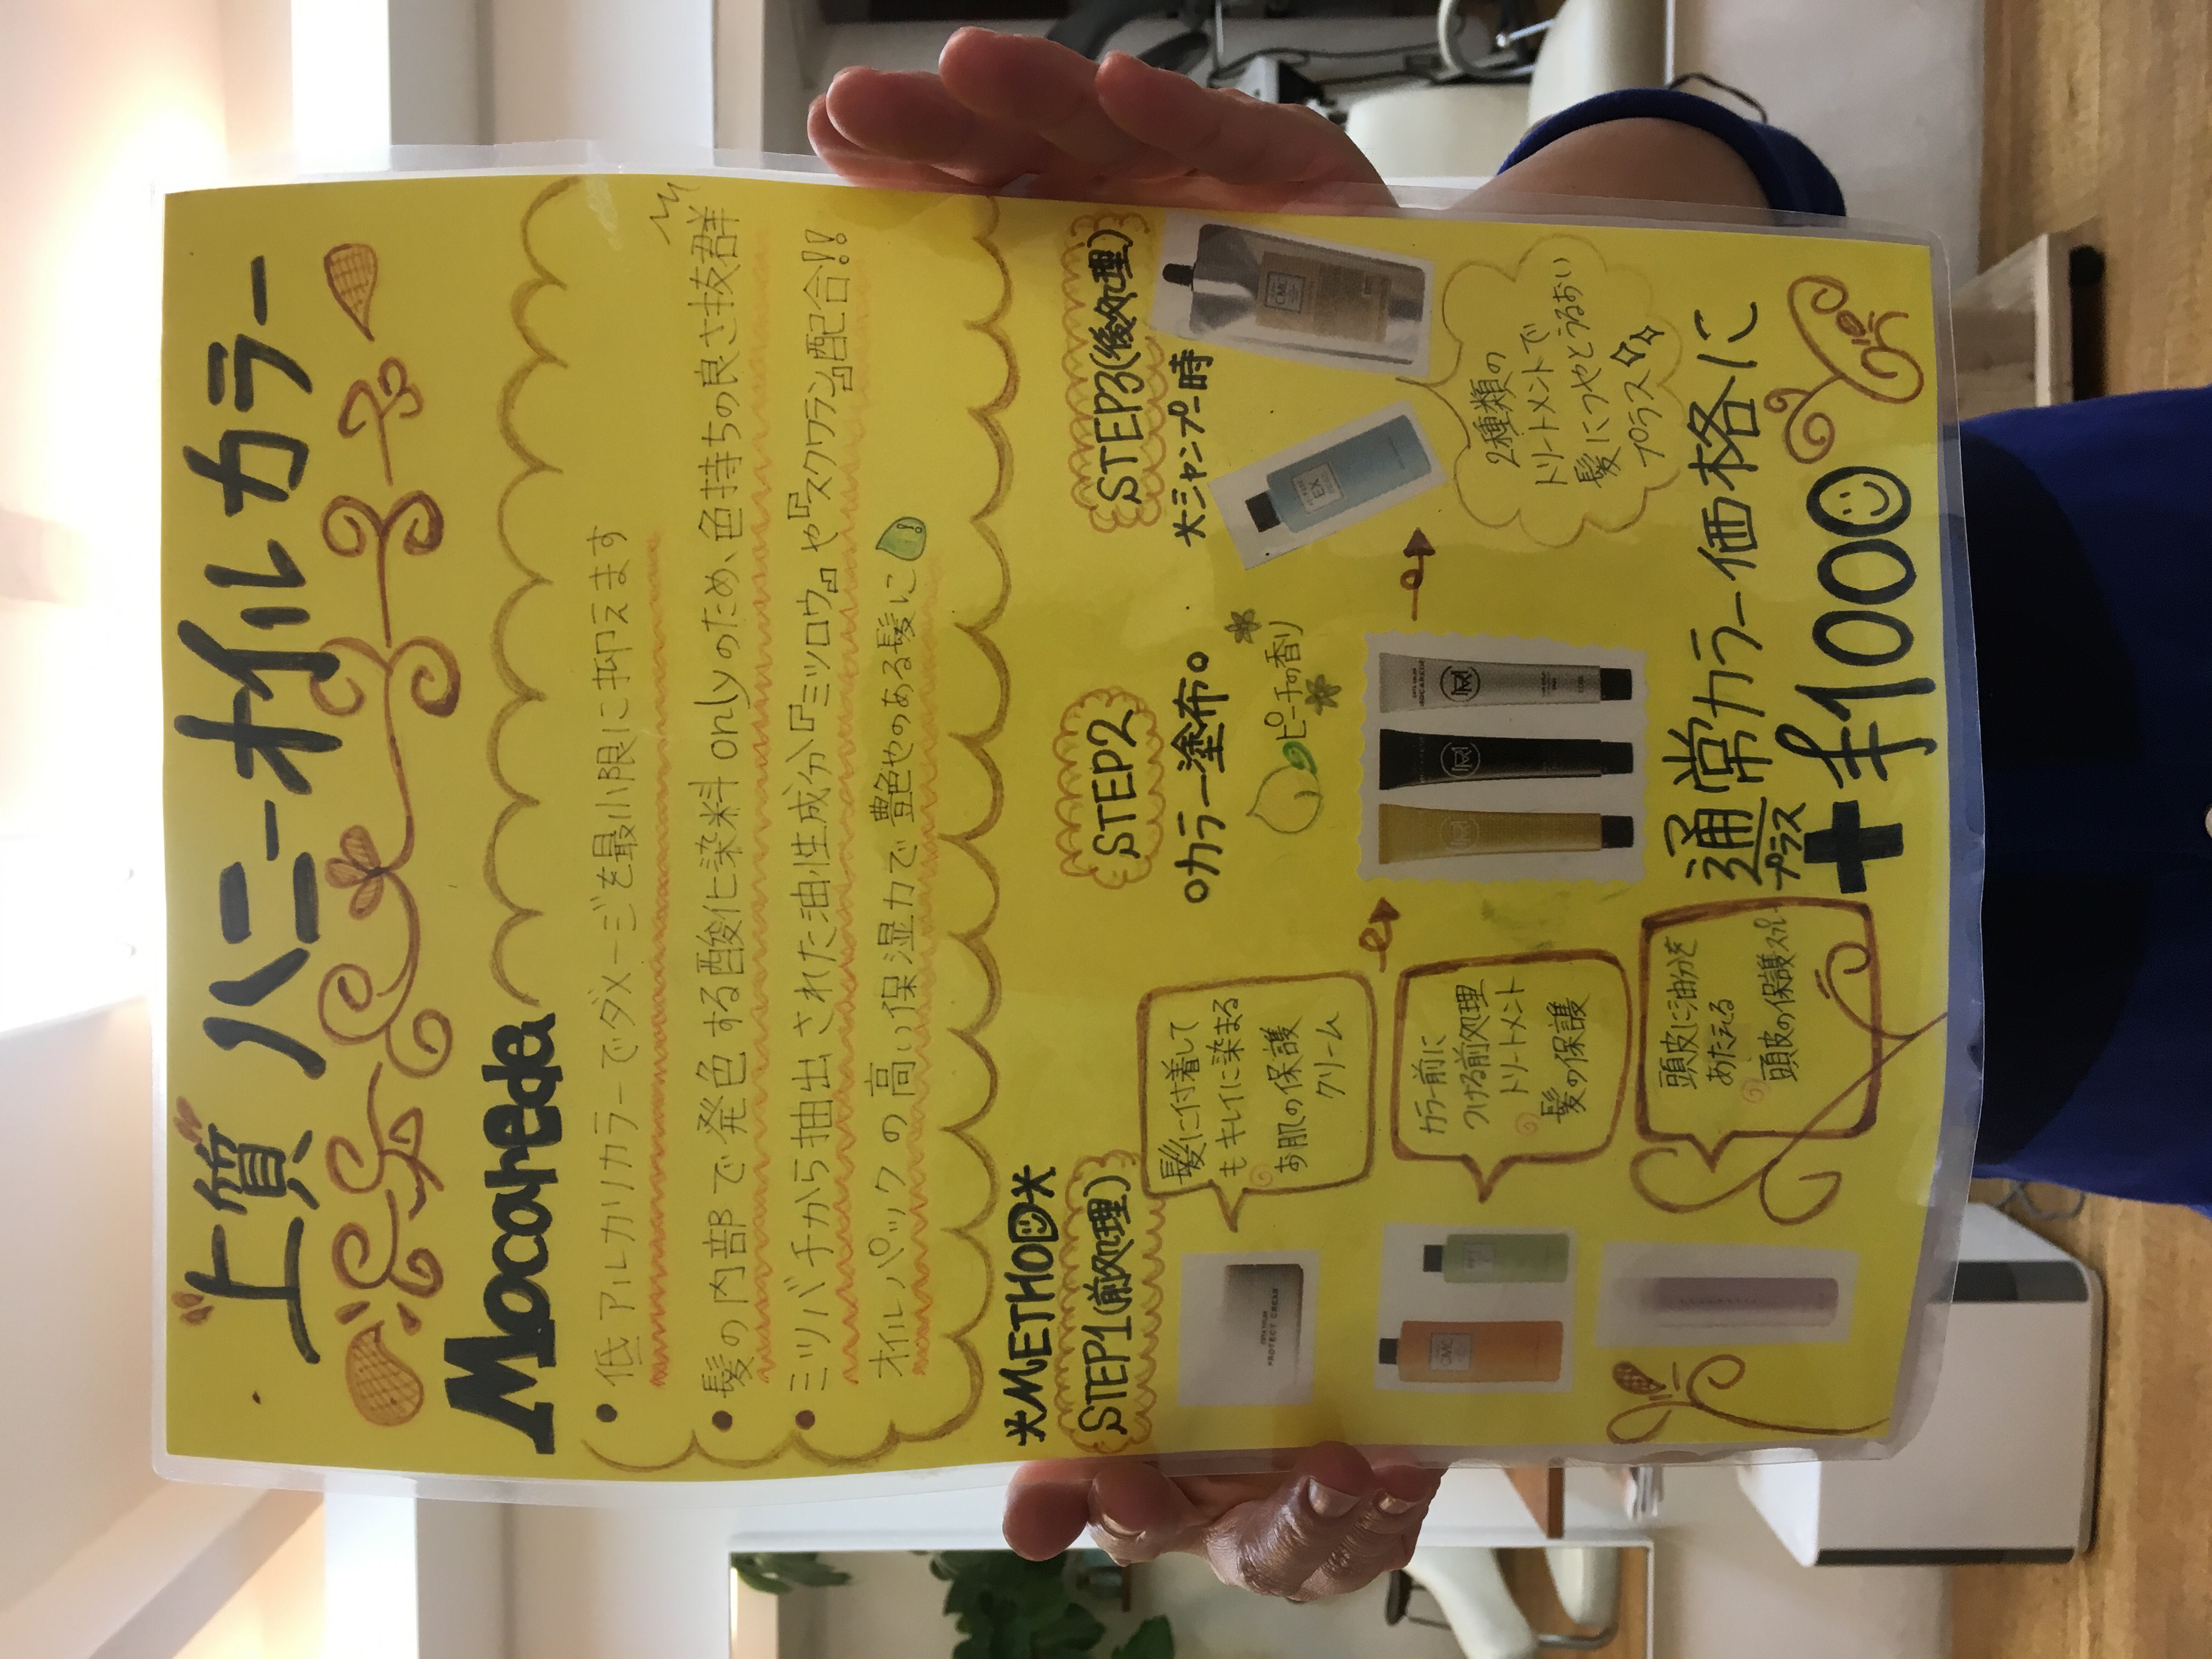 上質 ハニーオイルカラー
Mocareda
• 低アルカリカラーでダメージを最小限に抑えます
• 髪の内部で発色する酸化染料onlyのため、色持ちの良さ抜群
• ミツバチから抽出された油性成分『ミツロウ』や『スクワラン』配合!!
オイルパックの高い保湿力で艶やのある髪に
*METHOD*
STEP1(前処理)
髪に付着して
もキレイに染まる
お肌の保護
クリーム
PROTECT CREAM
カラー前に
つける前処理
トリートメント
髪の保護
CMC
頭皮に油分を
あたえる
頭皮の保護スプレー
STEP2
カラー塗布
ピーチの香り
STEP3(後処理)
*シャンプー時
EX
CMC
2種類の
トリートメントで
髪につやとうるおい
プラス
通常カラー価格に
プラス
+¥1000